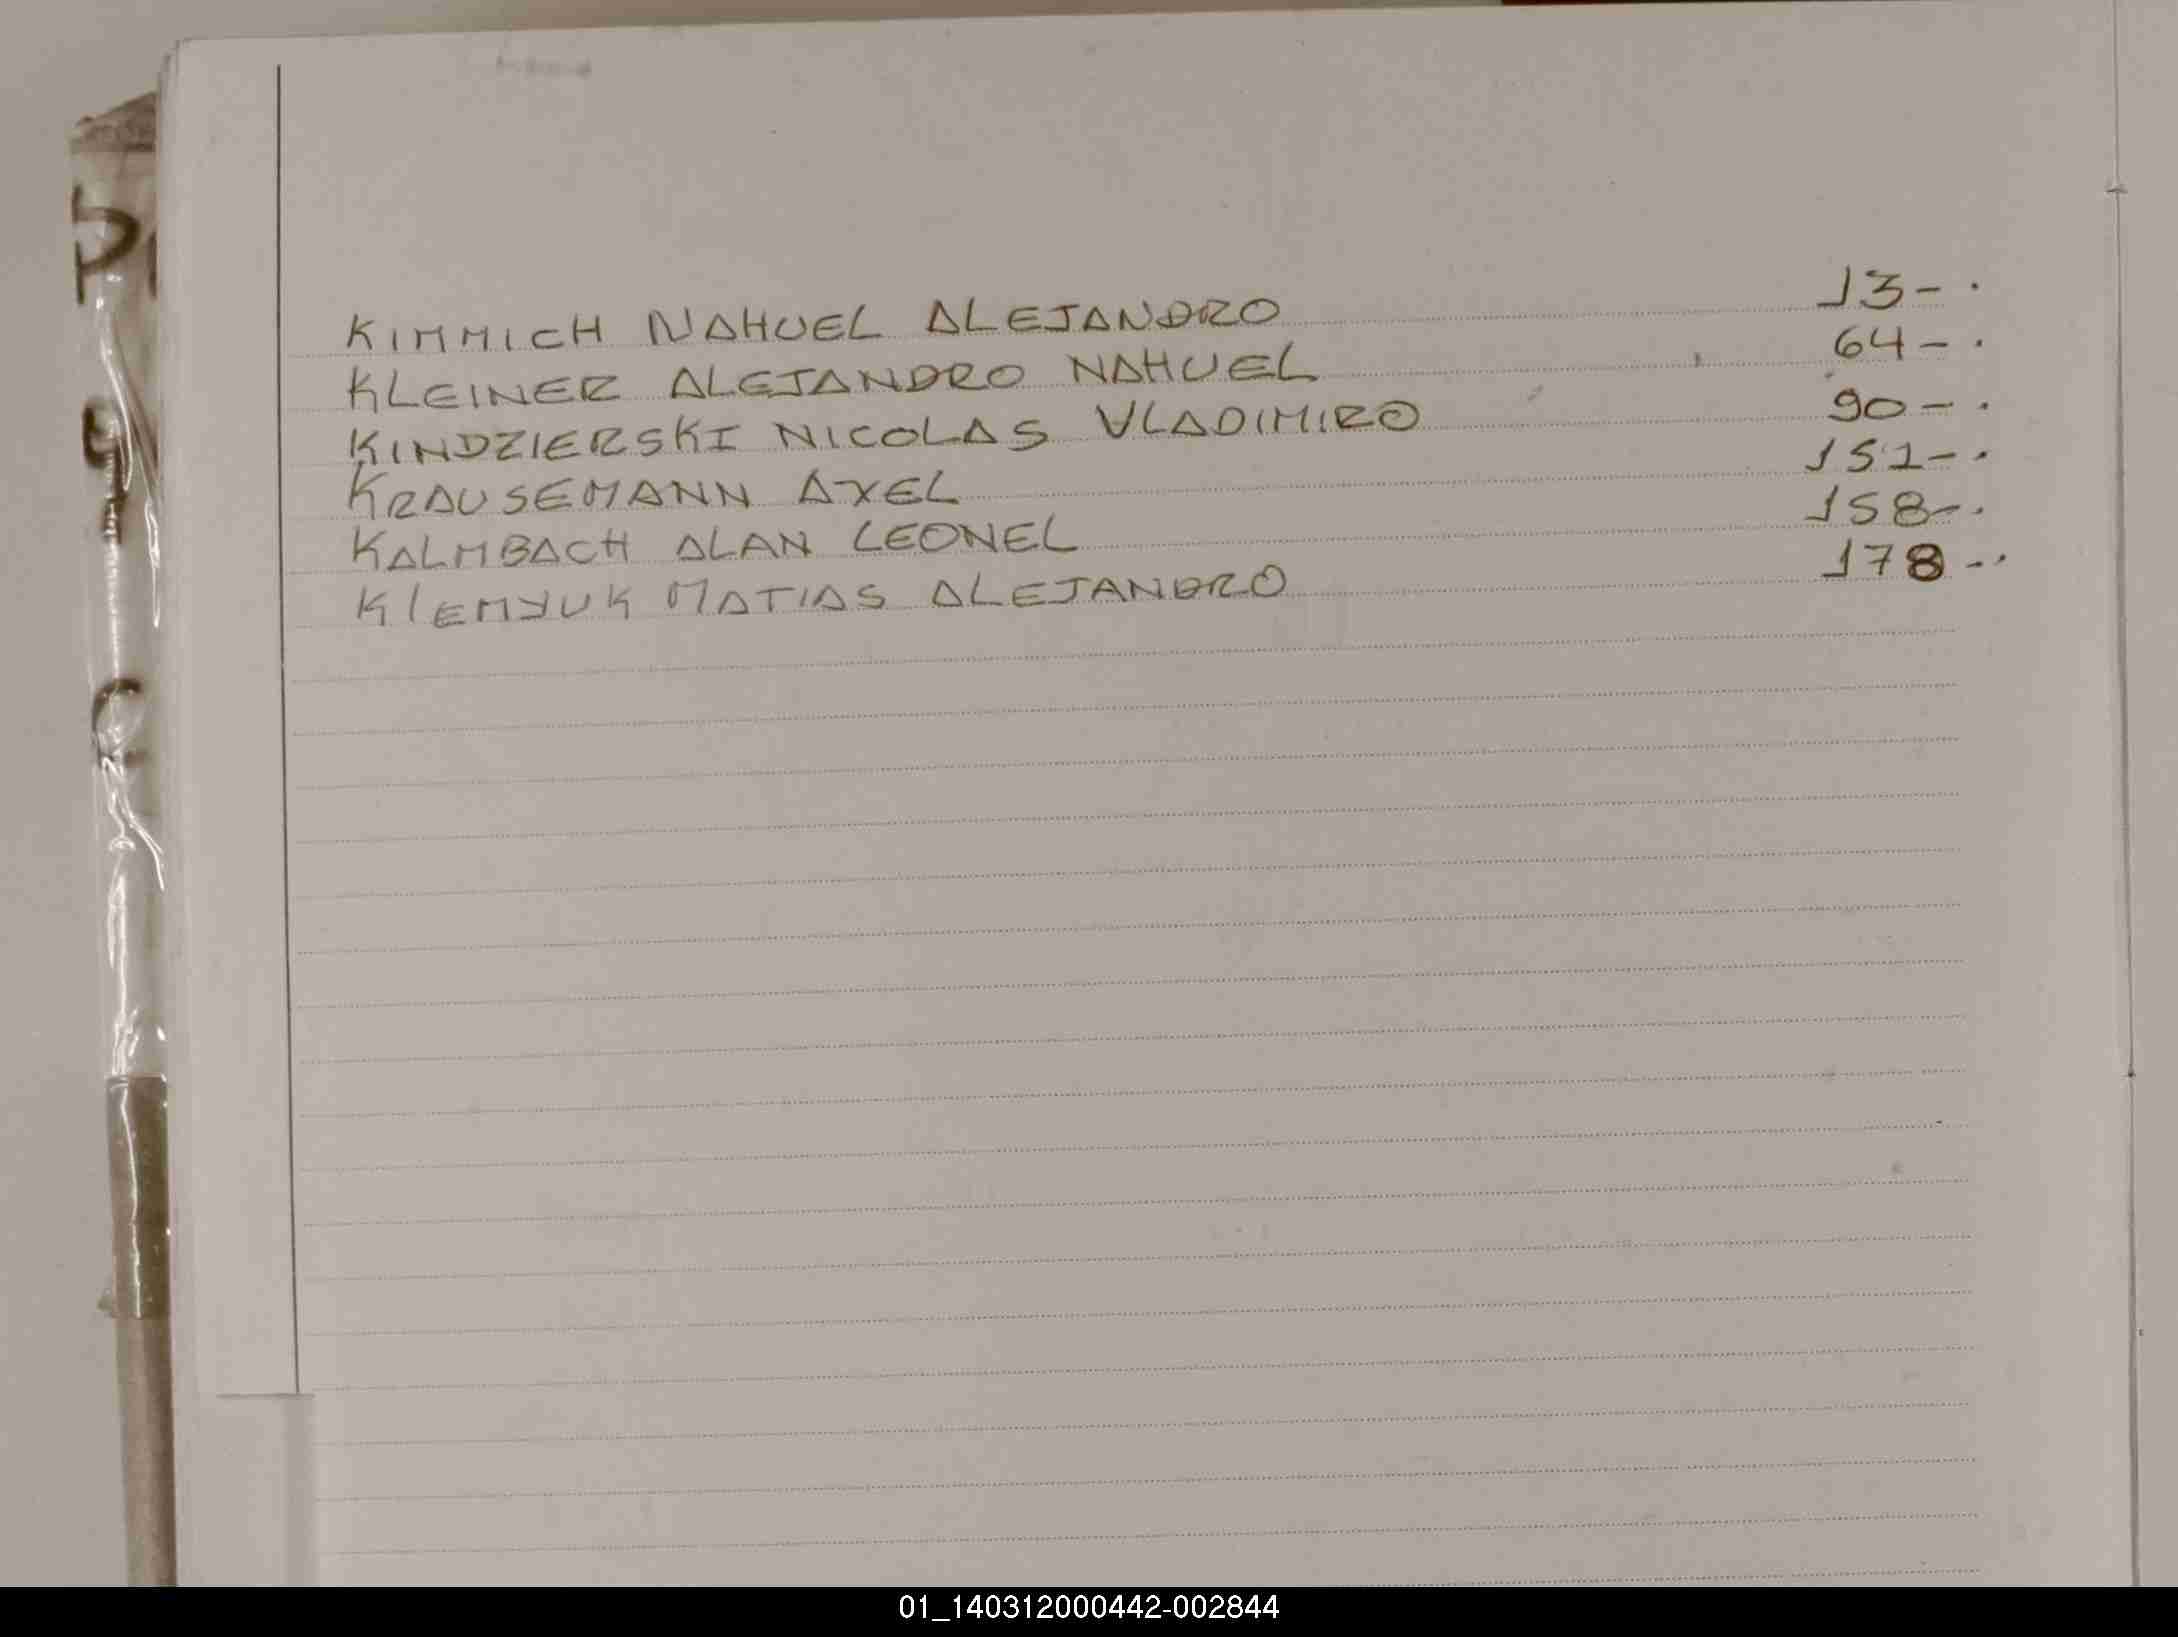 KIMMICH NAHUEL ALEJANDRO 13-.
KLEINER ALEJANDRO NAHUEL 64-.
KINDZIERSKI NICOLAS VLADIMIRO 90-.
KRAUSEMANN AXEL 151-.
KALMBACH ALAN LEONEL 158-.
KLEMYUK MATIAS ALEJANDRO 178-.
01_140312000442-002844